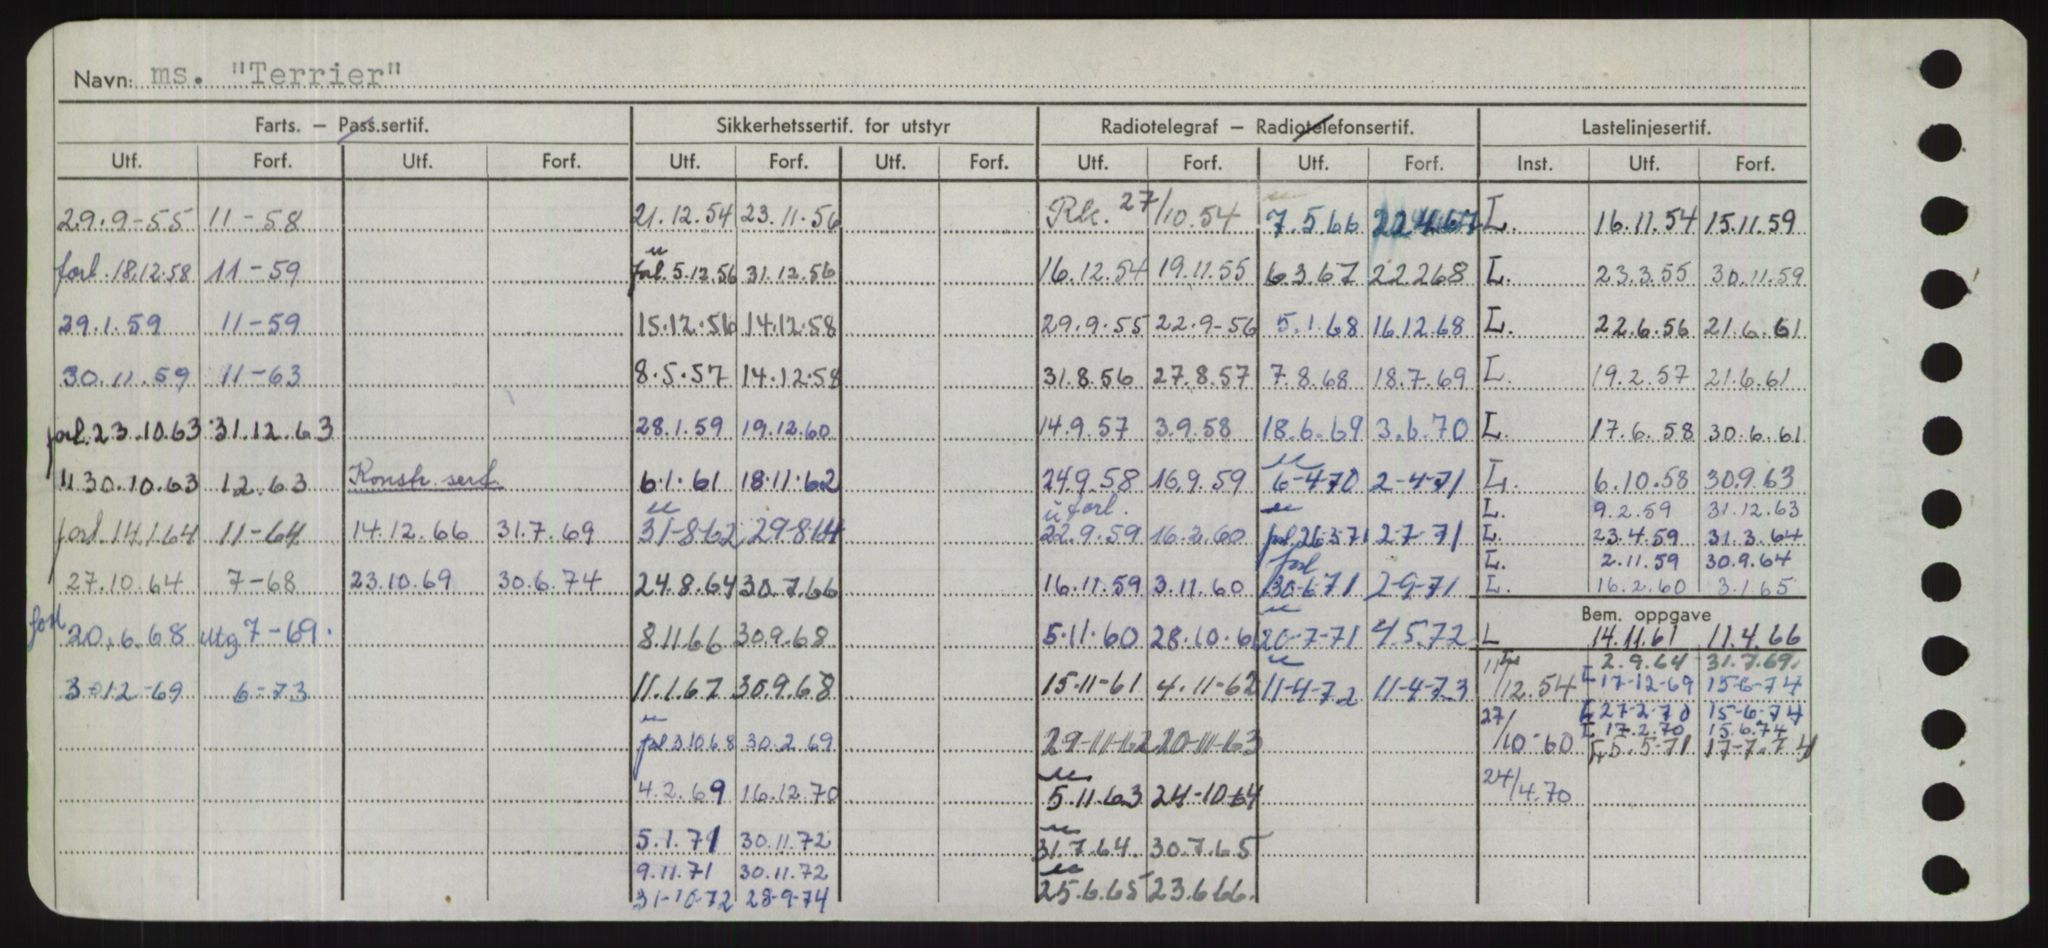 Navn: ms. "Terrier"
Farts. – Pass.sertif. Sikkerhetssertif. for utstyr Radiotelegraf – Radiotelefonsertif. Lastelinjesertif.
Utf. Forf. Utf. Forf. Utf. Forf. Utf. Forf. Utf. Forf. Utf. Forf. Inst. Utf. Forf.
29.9-55 11-58 21.12.54 23.11.56 Rk. 27/10.54 7.5.66 22.4.67 L. 16.11.54 15.11.59
forl. 18.12.58 11-59 forl. 5.12.56 31.12.56 16.12.54 19.11.55 6.3.67 22268 L. 23.3.55 30.11.59
29.1.59 11-59 15.12.56 14.12.58 29.9.55 22.9-56 5.1.68 16.12.68 L. 22.6.56 21.6.61
30.11.59 11-63 8.5.57 14.12.58 31.8.56 27.8.57 7.8.68 18.7.69 L. 19.2.57 21.6.61
forl. 23.10.63 31.12.63 28.1.59 19.12.60 14.9.57 3.9.58 18.6.69 3.6.70 L. 17.6.58 30.6.61
" 30.10.63 12.63 Konstr. sert. 6.1.61 18.11.62 24.9.58 16.9.59 6-4-70 2-4-71 L. 6.10.58 30.9.63
forl. L. 9.2.59 31.12.63
forl. 14.1.64 11-64 14.12.66 31.7.69 31-8-62 29-8-64 22.9.59 16.2.60 forl. 26.3.71 2-7-71 L. 23.4.59 31.3.64
forl L. 2.11.59 30.9.64
27.10.64 7-68 23.10.69 30.6.74 24.8.64 30.7.66 16.11.59 3.11.60 30-6-71 2-9-71 L. 16.2.60 3.1.65
Bem. oppgave
forl 20.6.68 utg 7-69. 8.11.66 30.9.68 5.11.60 28.10.6 20-7-71 4.5.72 L 14.11.61 11.4.66
2.9.64 31.7.69.
3-12-69 6-73 11.1.67 30.9.68 15-11-61 4.11-62 11-4-72 11-4-73 11/12.54 L 17-12-69 15-6-74
27/10-60 L 27-2-70 15-6-74
L 17.2.70 15.6.74
forl 3.10.68 30.2.69 29-11-62 20-11-63 L 5.5-71 17-7.74
4.2.69 16.12.70 5.11.63 24-10-64 24/4.70
5.1.71 30.11.72 31.7.64. 30.7.65
9.11.71 30.11.72
31-10-72 28-9-74 25.6.65 23.6.66.